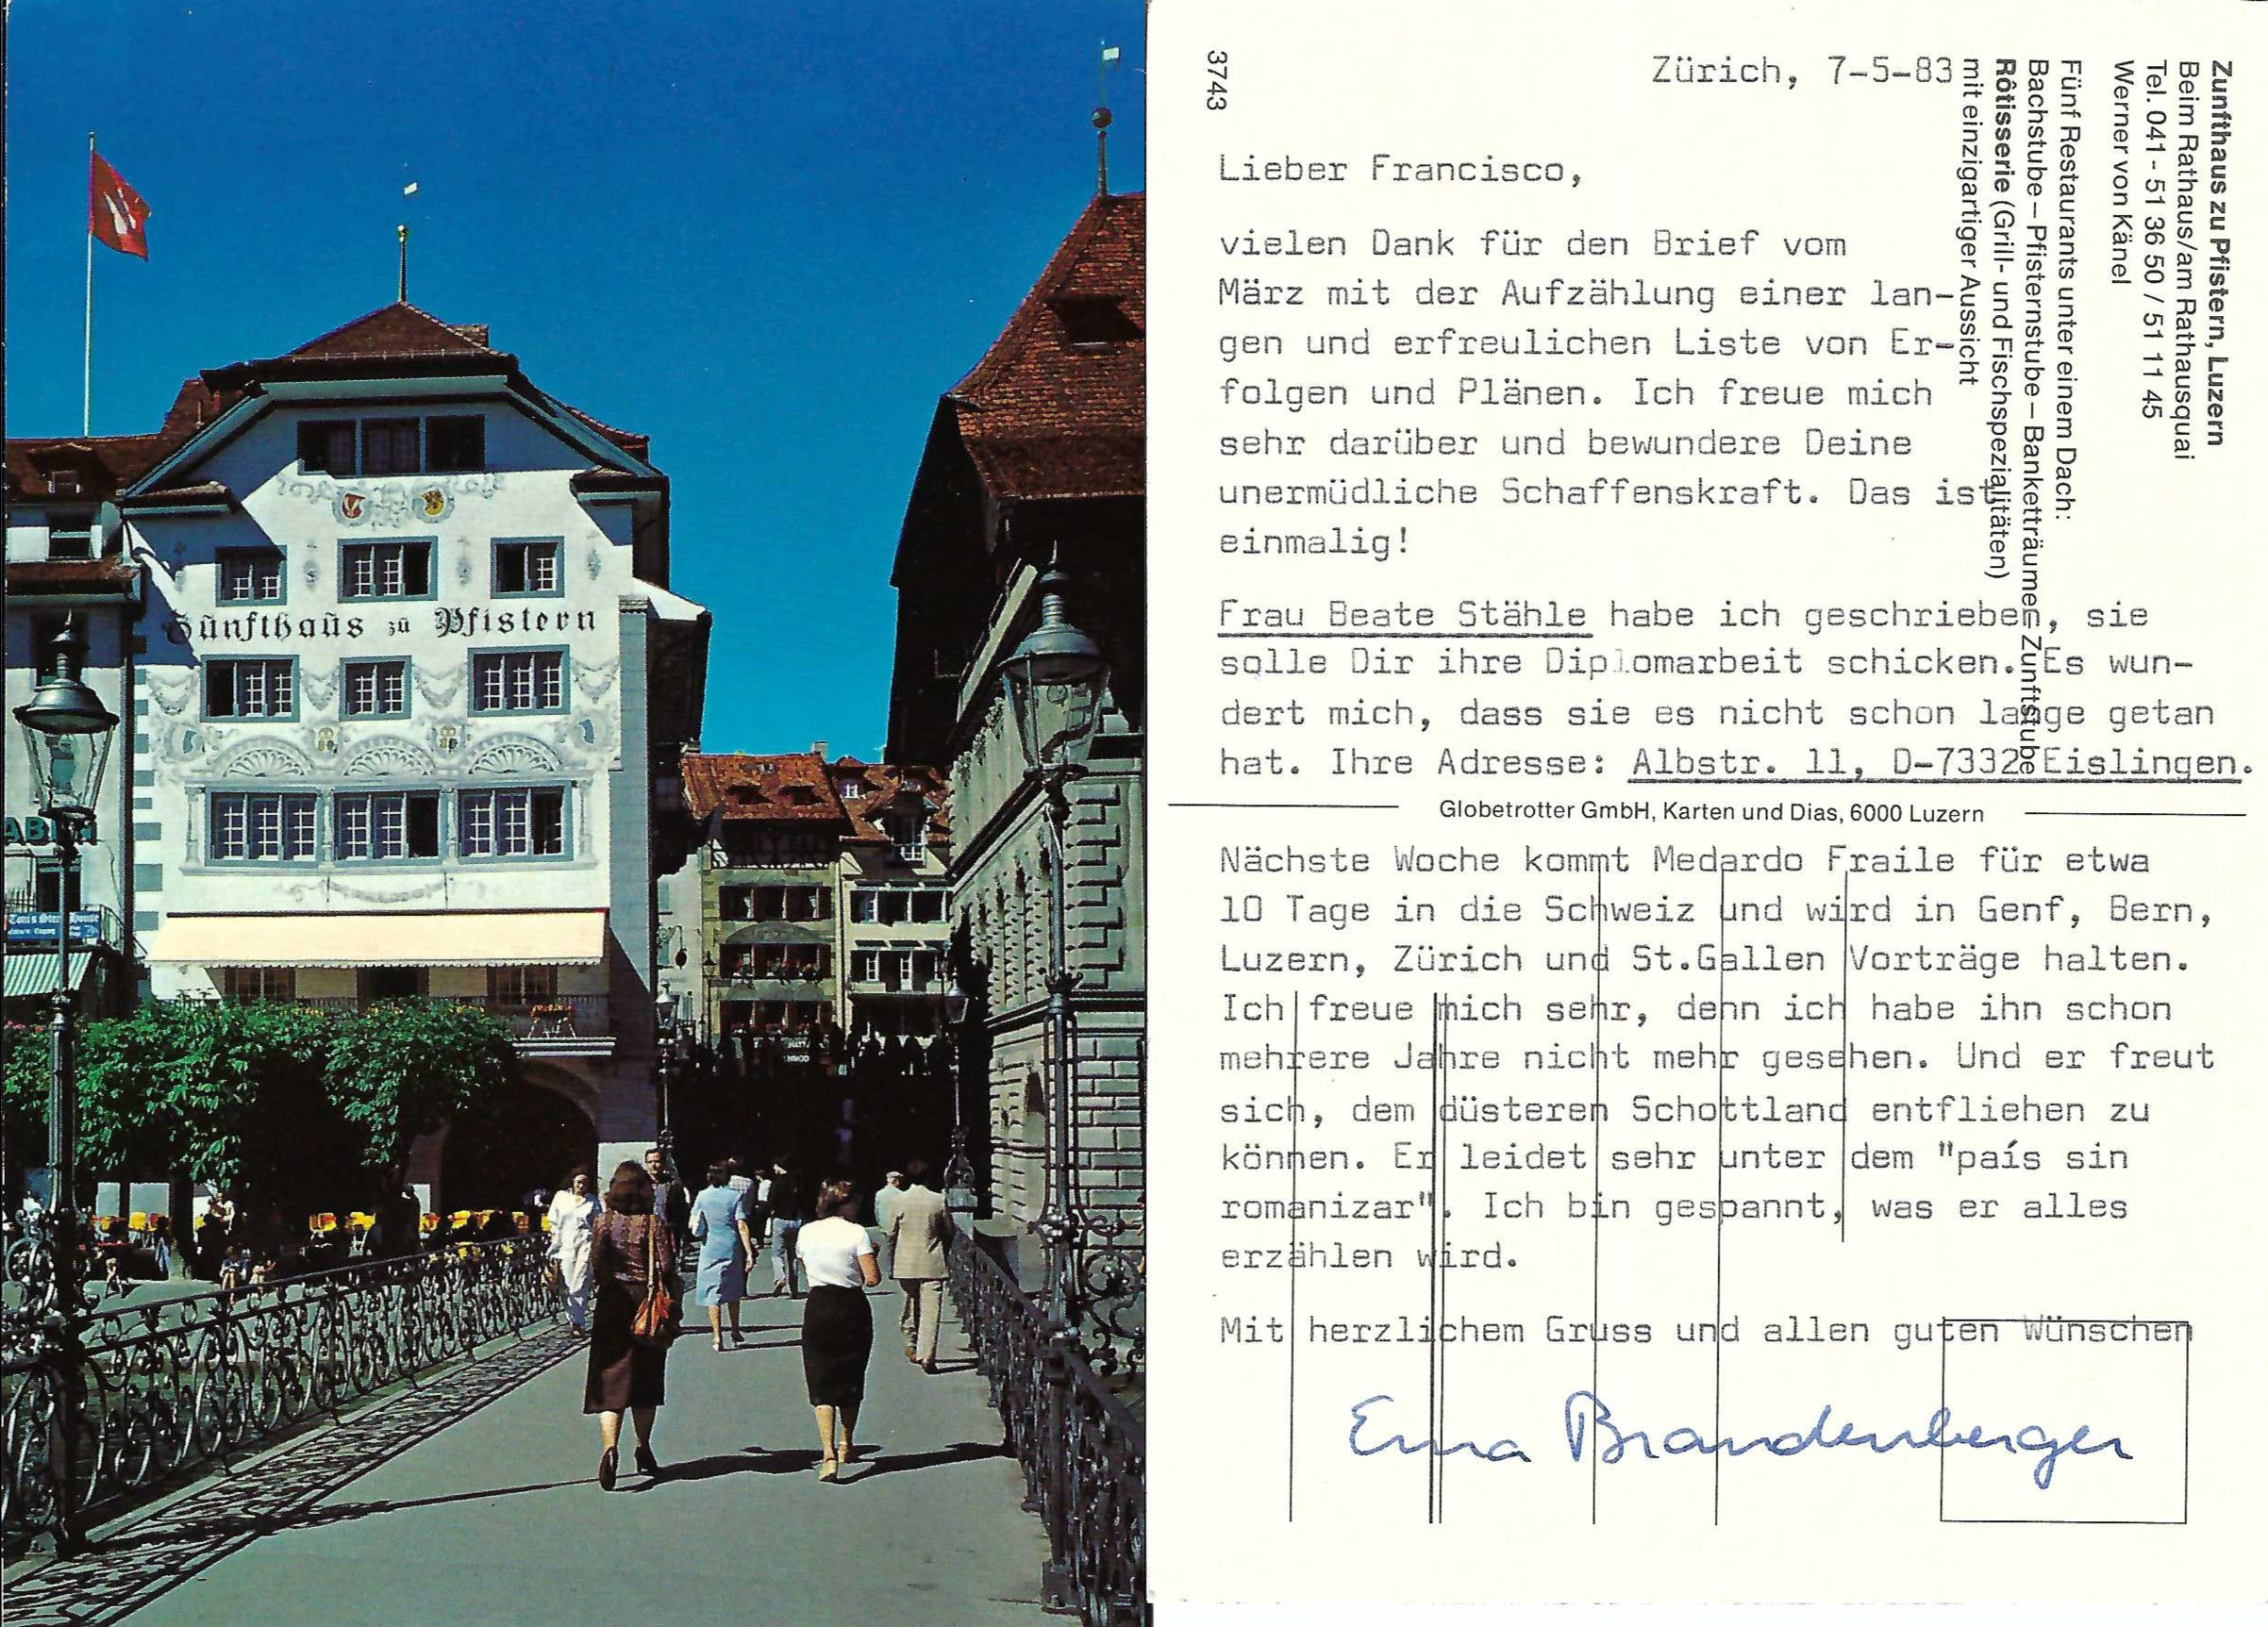 Zunfthaus zu Pfistern
Tom's
House
3743
Zürich, 7-5-83
Zunfthaus zu Pfistern, Luzern
Beim Rathaus/am Rathausquai
Tel. 041 - 51 36 50 / 51 11 45
Werner von Känel
Fünf Restaurants unter einem Dach:
Bachstube – Pfisternstube – Banketträume – Zunftstube
Rôtisserie (Grill- und Fischspezialitäten)
mit einzigartiger Aussicht
Lieber Francisco,
vielen Dank für den Brief vom
März mit der Aufzählung einer lan-
gen und erfreulichen Liste von Er-
folgen und Plänen. Ich freue mich
sehr darüber und bewundere Deine
unermüdliche Schaffenskraft. Das ist
einmalig!
Frau Beate Stähle habe ich geschrieben, sie
solle Dir ihre Diplomarbeit schicken. Es wun-
dert mich, dass sie es nicht schon lange getan
hat. Ihre Adresse: Albstr. 11, D-7332 Eislingen.
Globetrotter GmbH, Karten und Dias, 6000 Luzern
Nächste Woche kommt Medardo Fraile für etwa
10 Tage in die Schweiz und wird in Genf, Bern,
Luzern, Zürich und St.Gallen Vorträge halten.
Ich freue mich sehr, denn ich habe ihn schon
mehrere Jahre nicht mehr gesehen. Und er freut
sich, dem düsteren Schottland entfliehen zu
können. Er leidet sehr unter dem "país sin
romanizar". Ich bin gespannt, was er alles
erzählen wird.
Mit herzlichem Gruss und allen guten Wünschen
Erna Brandenberger